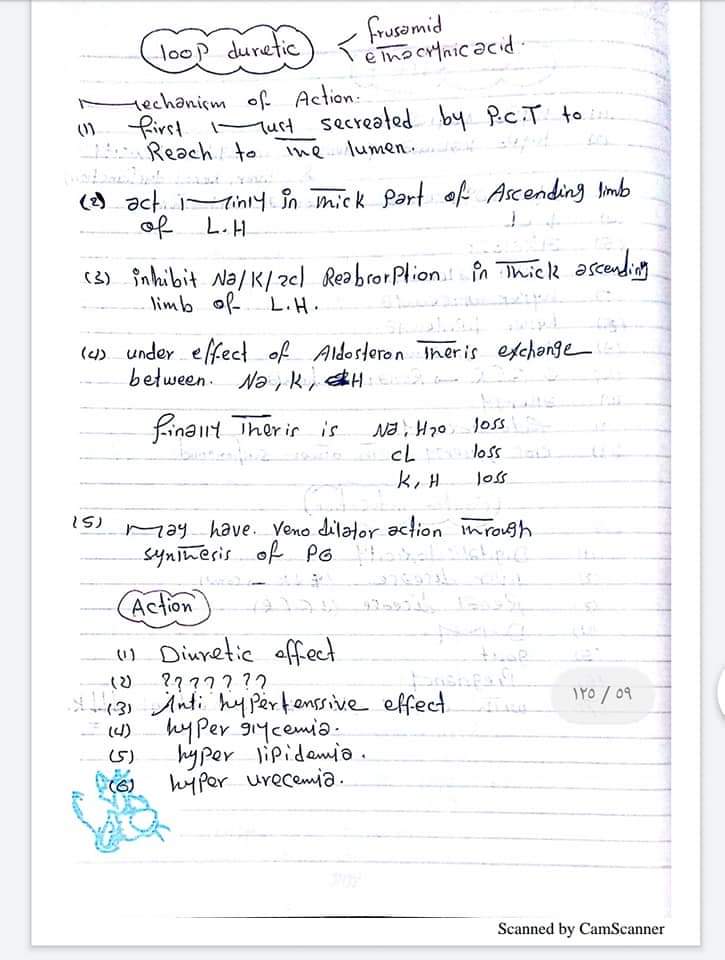 loop duretic
frusamid
ethacrynic acid.
Mechanism of Action:
(1) first Must secreated by P.C.T to
Reach to the lumen.
(2) act mainly in thick part of Ascending limb
of L.H
(3) inhibit Na/K/2cl Reabsorption in Thick ascending
limb of L.H.
(4) under effect of Aldosteron Theris exchange
between. Na, K, H
finally Theris is Na, H2O loss
cL loss
K, H loss
(5) May have. Veno dilator action through
synthesis of PG
Action
(1) Diuretic effect
(2) ???????
(3) Anti hypertenssive effect
(4) hyper glycemia.
(5) hyper lipidemia.
(6) hyper urecemia.
١٢٥ / ٥٩
Scanned by CamScanner